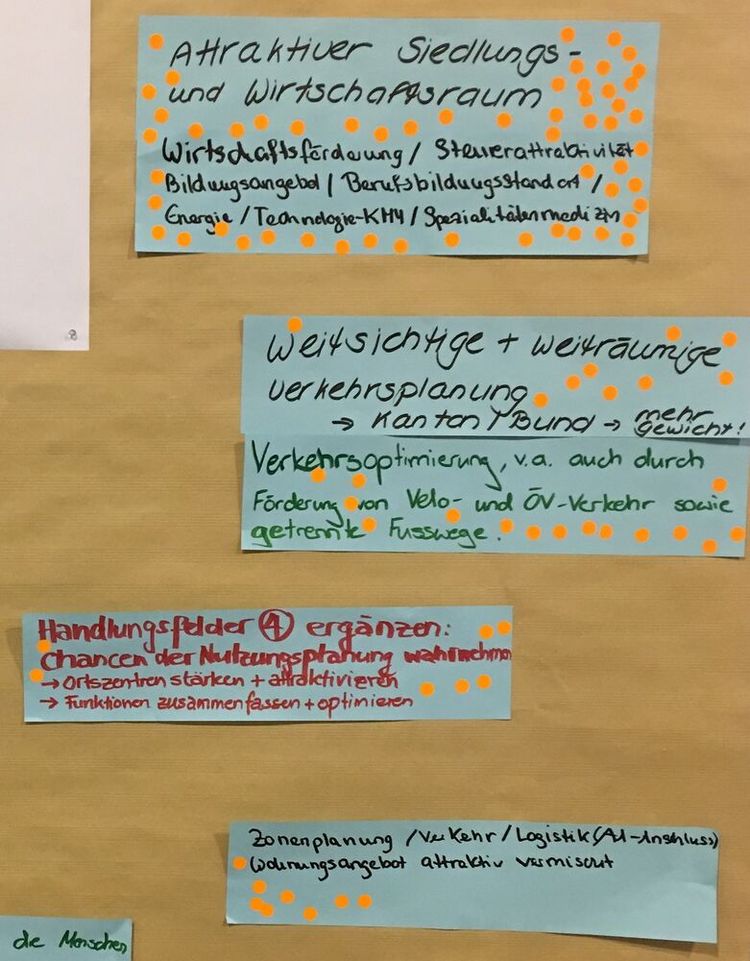 Attraktiver Siedlungs-
und Wirtschaftsraum
Wirtschaftsförderung / Steuerattraktivität
Bildungsangebot / Berufsbildungsstandort /
Energie / Technologie-KMU / Spezialitätenmedizin
Weitsichtige + weiträumige
Verkehrsplanung
→ Kanton / Bund → mehr
gewicht!
Verkehrsoptimierung, v.a. auch durch
Förderung von Velo- und ÖV-Verkehr sowie
getrennte Fusswege.
Handlungsfelder ④ ergänzen:
Chancen der Nutzungsplanung wahrnehmen
→ Ortszentren stärken + attraktivieren
→ Funktionen zusammenfassen + optimieren
Zonenplanung / Verkehr / Logistik (A1-Anschluss)
Wohnungsangebot attraktiv vermischt
die Menschen